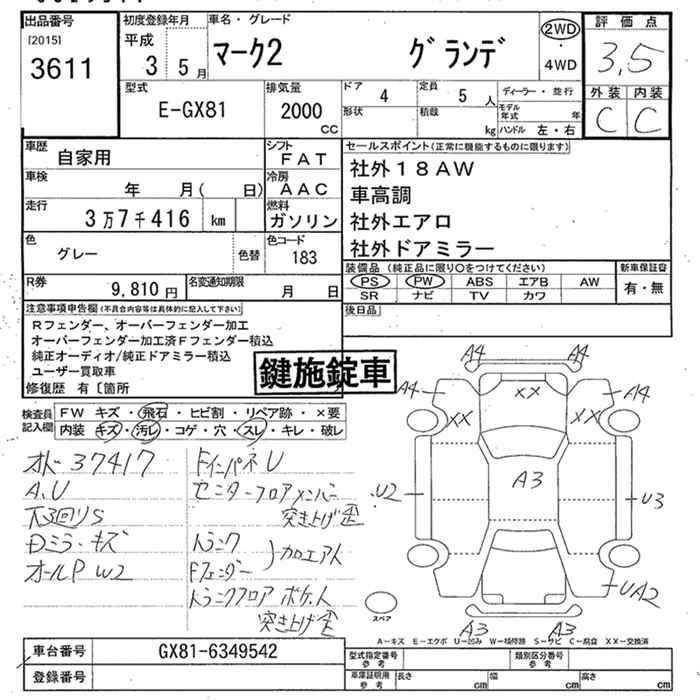 出品番号
[2015]
3611
初度登録年月
平成
3 5月
車名・グレード
マーク2 グランデ
2WD
4WD
評価点
3.5
外装 内装
C C
型式
E-GX81
排気量
2000
cc
ドア
4
定員
5 人
形状
積載
kg
ディーラー・並行
モデル年式 年
ハンドル 左・右
車歴
自家用
シフト
FAT
車検
年 月( 日)
冷房
AAC
走行
3万7千416 km
燃料
ガソリン
色
グレー
色替
色コード
183
R券
9,810円
名変通知期限
月 日
セールスポイント(正常に機能するものに限ります)
社外18AW
車高調
社外エアロ
社外ドアミラー
装備品(純正品に限り○をつけてください)
PS PW ABS エアB AW
SR ナビ TV カワ
新車保証書
有・無
後日品
注意事項申告欄(不具合内容等は具体的に記入して下さい)
Rフェンダー、オーバーフェンダー加工
オーバーフェンダー加工済Fフェンダー積込
純正オーディオ/純正ドアミラー積込
ユーザー買取車
修復歴 有〔箇所
鍵施錠車
検査員記入欄
FW キズ・飛石・ヒビ割・リペア跡・×要
内装 キズ・汚レ・コゲ・穴・スレ・キレ・破レ
オド 37417
A.U
下回りS
Dミラーキズ
オールP W2
FインパネU
センターフロアメンバー
突き上げ歪
トランク
Fフェンダー
加工エアト
トランクフロア ポケット
突き上げ歪
A4 A4
A4 XX A4
XX XX
U2 A3 U3
UA2
A3 A3
スペア
A-キズ E-エクボ U-凹み W-補修跡 S-サビ C-腐食 XX-交換済
車台番号
GX81-6349542
登録番号
型式指定番号
参考
類別区分番号
参考
車庫証明用
参考
長さ cm
幅 cm
高さ cm